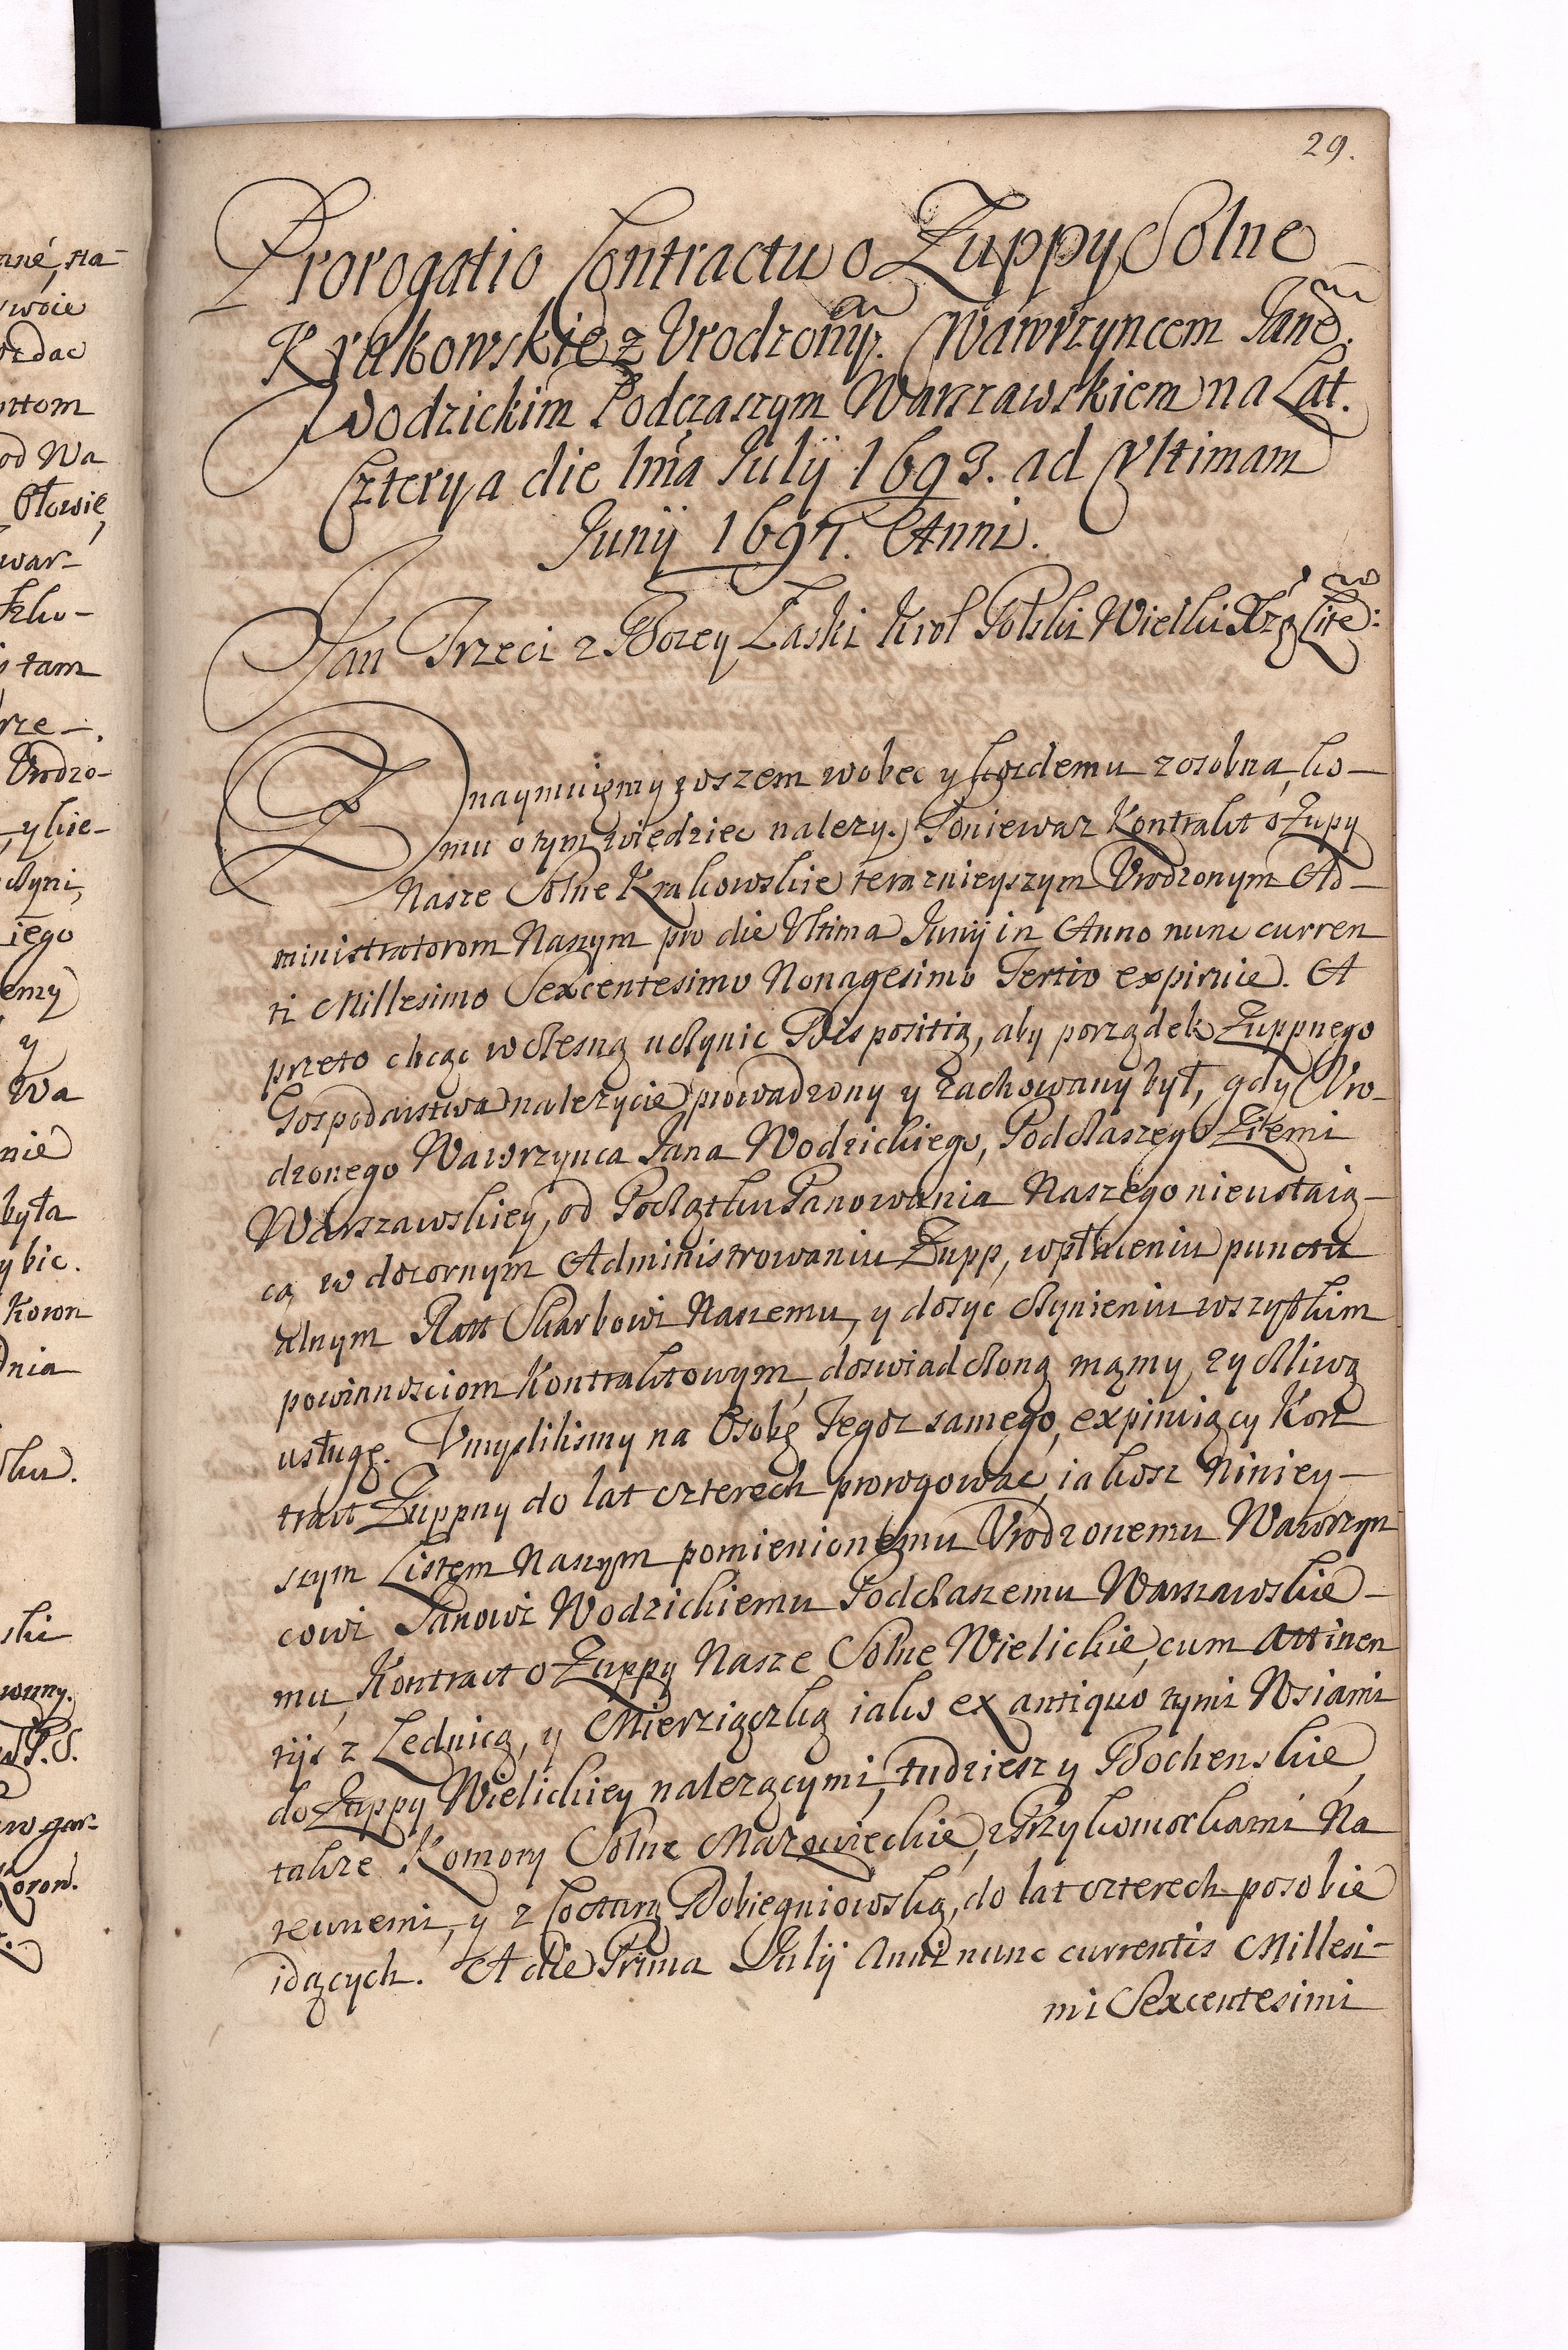 29.
Prorogatio Contractu o Zuppy Solne
Krakowskie z Vrodzony. Wawrzyncem Jane.
Wodzickim Podczaszym Warszawskiem na Lat.
Cztery a die 1ma July 1693. ad Vltimam
Junij 1697. Anni.
Jan Trzeci z Bozey Łaski Krol Polski Wielki Xżą Lite:
Znaymuiemy wszem wobec y kozdemu zosobna, ko-
mu o tym wiedziec nalezy. Poniewaz Kontrakt o Zupy
Nasze Solne Krakowskie teraznieyszym Vrodzonym Ad-
ministratorom Naszym pro die Vltima Junij in Anno nunc curren
ti Millesimo Sexcentesimo Nonagesimo Tertio expiruie. A
przeto chcąc wczesną uczynic Dispositią, aby porządek Zuppnego
Gospodarstwa nalezycie prowadzony y zachowany był, gdy Vro-
dzonego Wawrzynca Jana Wodzickiego, Podczaszego Ziemi
Warszawskiey, od Początku Panowania Naszego nieustaią-
cą, w dozornym Administrowaniu Zupp, wpłaceniu punctu
alnym Ratt Skarbowi Naszemu, y dosyc czynieniu wszytkim
powinnosciom Kontraktowym, doswiadczoną mamy, zyczliwą
usługę. Vmyslilismy na Osobę Tegoz samego, expiruiący Kon
trakt Zuppny do lat czterech prorogowac, iakosz Niniey-
szym Listem Naszym pomienionemu Vrodzonemu Wawrzyn
cowi Janowi Wodzickiemu Podczaszemu Warszawskie-
mu, Kontract o Zuppy Nasze Solne Wielickie, cum Attinen
tijs z Lednicą, y Mierziączką iako ex antiquo tymi Wsiami
do Zuppy Wielickiey nalezącymi, tudziesz y Bochenskie,
takze Komory Solne Mazowieckie, z Przykomorkami Na
reunemi, y z Locturą Dobiegniowską, do lat czterech posobie
idących. A die Prima Julij Anni nunc currentis Millesi-
mi Sexcentesimi